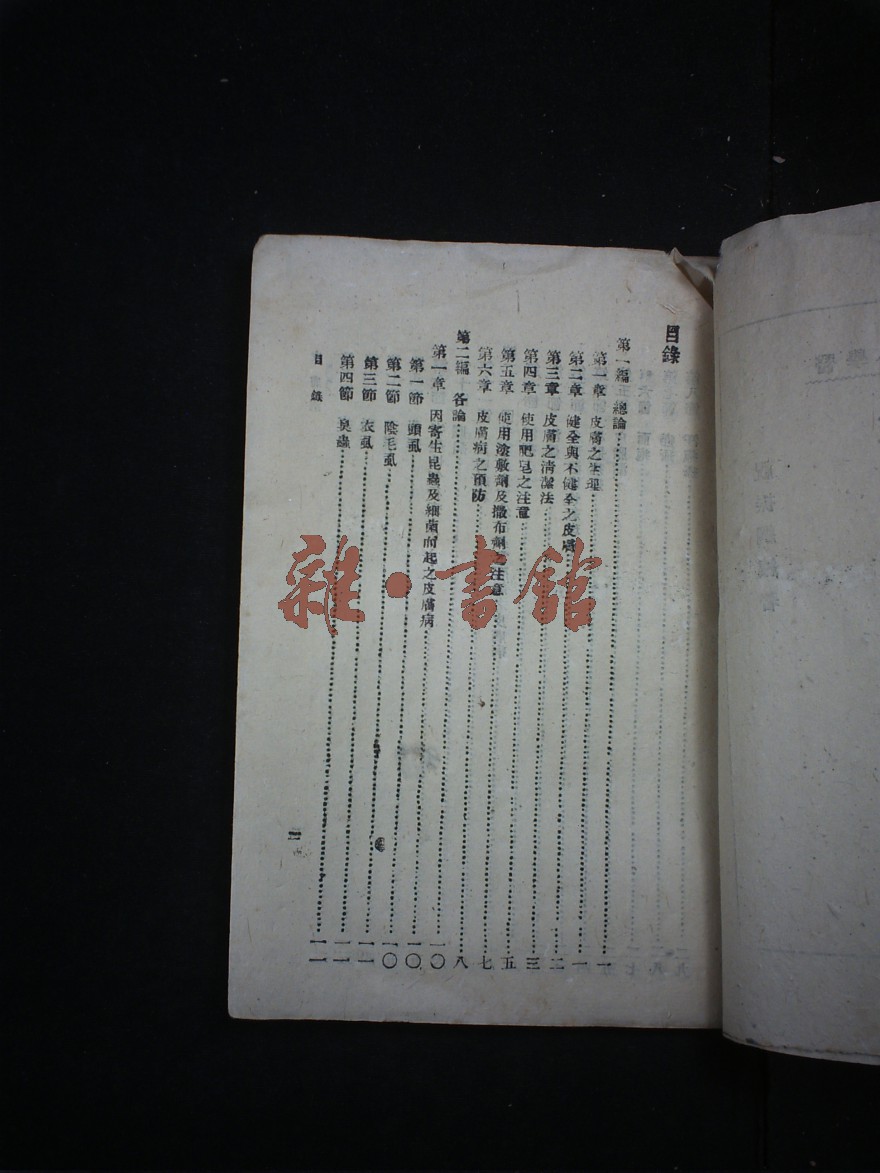 目錄
第一編 總論……一
第一章 皮膚之生理……一
第二章 健全與不健全之皮膚……二
第三章 皮膚之清潔法……三
第四章 使用肥皂之注意……五
第五章 使用塗敷劑及撒布劑之注意……七
第六章 皮膚病之預防……八
第二編 各論……一〇
第一章 因寄生昆蟲及細菌而起之皮膚病……一〇
第一節 頭虱……一〇
第二節 陰毛虱……一一
第三節 衣虱……一一
第四節 臭蟲……一一
目錄
一
雜·書館